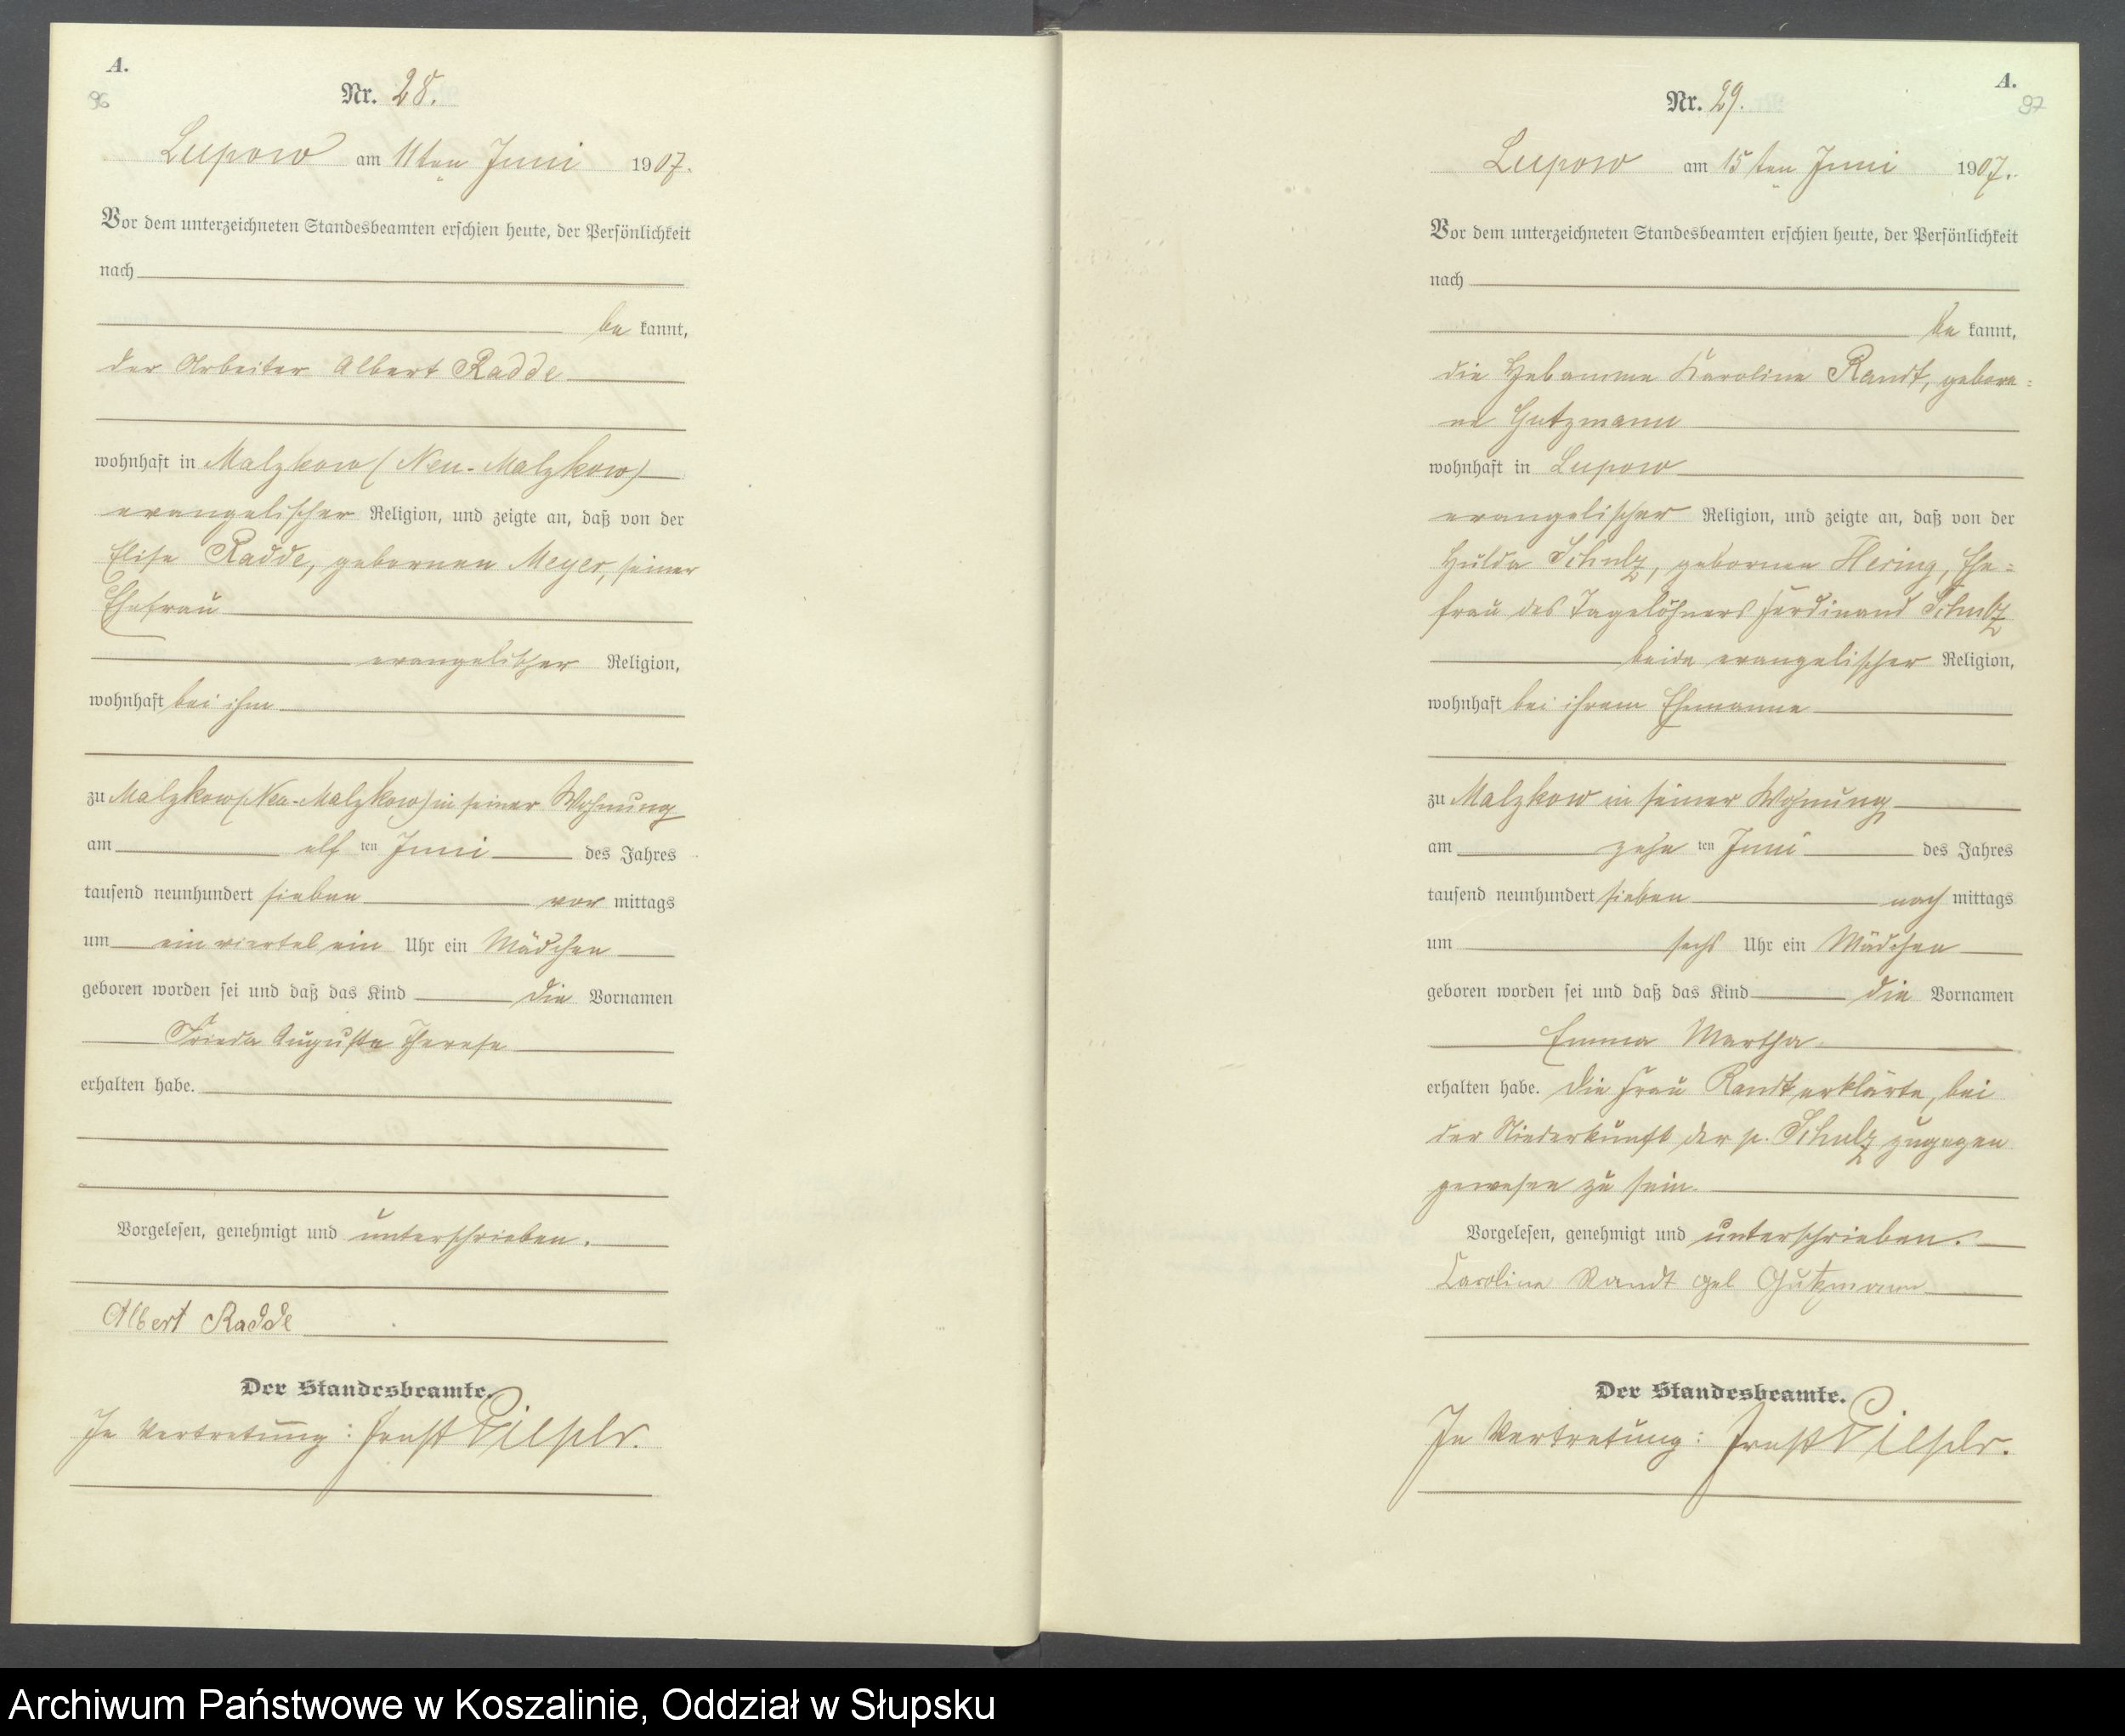 A.
96
Nr. 28.
Lupow am 11ten Juni 1907.
Vor dem unterzeichneten Standesbeamten erschien heute, der Persönlichkeit
nach
be kannt,
der Arbeiter Albert Radde
wohnhaft in Malzkow (Neu-Malzkow)
evangelischer Religion, und zeigte an, daß von der
Elise Radde, gebornen Meyer, seiner
Ehefrau
evangelischer Religion,
wohnhaft bei ihm
zu Malzkow (Neu-Malzkow) in seiner Wohnung
am elf ten Juni des Jahres
tausend neunhundert sieben vor mittags
um ein viertel ein Uhr ein Mädchen
geboren worden sei und daß das Kind die Vornamen
Frieda Auguste Therese
erhalten habe.
Vorgelesen, genehmigt und unterschrieben.
Albert Radde
Der Standesbeamte.
In Vertretung: Ernst
A.
97
Nr. 29.
Lupow am 15ten Juni 1907.
Vor dem unterzeichneten Standesbeamten erschien heute, der Persönlichkeit
nach
be kannt,
die Hebamme Karoline Randt, gebore=
ne Gutzmann
wohnhaft in Lupow
evangelischer Religion, und zeigte an, daß von der
Hulda Schulz, gebornen Hering, Ehe=
frau des Tagelöhners Ferdinand Schulz
beide evangelischer Religion,
wohnhaft bei ihrem Ehemanne
zu Malzkow in seiner Wohnung
am zehn ten Juni des Jahres
tausend neunhundert sieben nach mittags
um sechs Uhr ein Mädchen
geboren worden sei und daß das Kind die Vornamen
Emma Martha
erhalten habe. Die Frau Randt erklärte, bei
der Niederkunft der p. Schulz zugegen
gewesen zu sein.
Vorgelesen, genehmigt und unterschrieben.
Caroline Randt geb Gutzmann
Der Standesbeamte.
In Vertretung: Ernst
Archiwum Państwowe w Koszalinie, Oddział w Słupsku